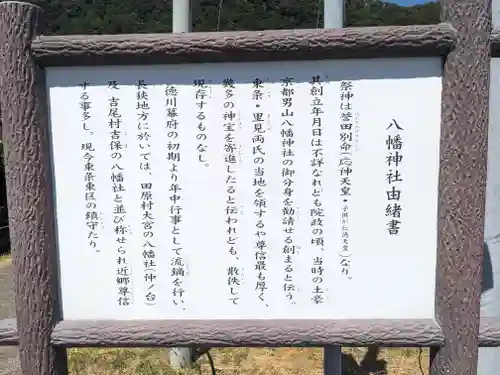 八幡神社由緒書
祭神は誉田別命(応神天皇・子供が仁徳天皇)なり。
其創立年月日は不詳なれども院政の頃、当時の土豪
京都男山八幡神社の御分身を勧請せる創まると伝う。
東条・里見両氏の当地を領するや尊信最も厚く、
幾多の神宝を寄進したると伝われども、散佚して
現存するものなし。
徳川幕府の初期より年中行事として流鏑を行い、
長狭地方に於いては、田原村大宮の八幡社(仲ノ台)
及 吉尾村吉保の八幡社と並び称せられ近郷尊信
する事多し。現今東条東区の鎮守たり。